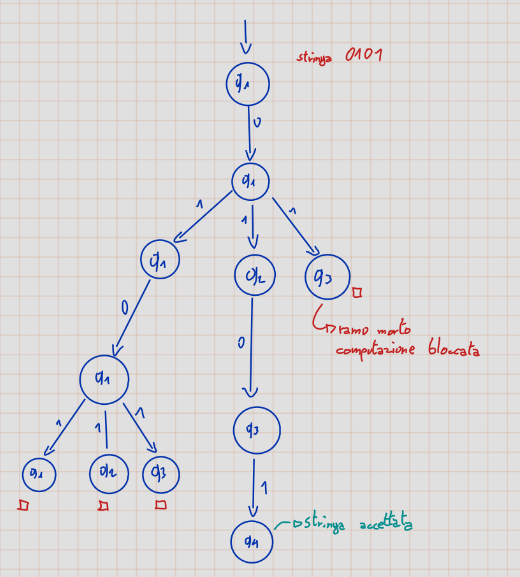 stringa 0101
q1
0
q1
1 1 1
q1 q2 q3
0 0
ramo morto
computazione bloccata
q1
1 1 1
q3
q1 q2 q3
1
stringa accettata
q4